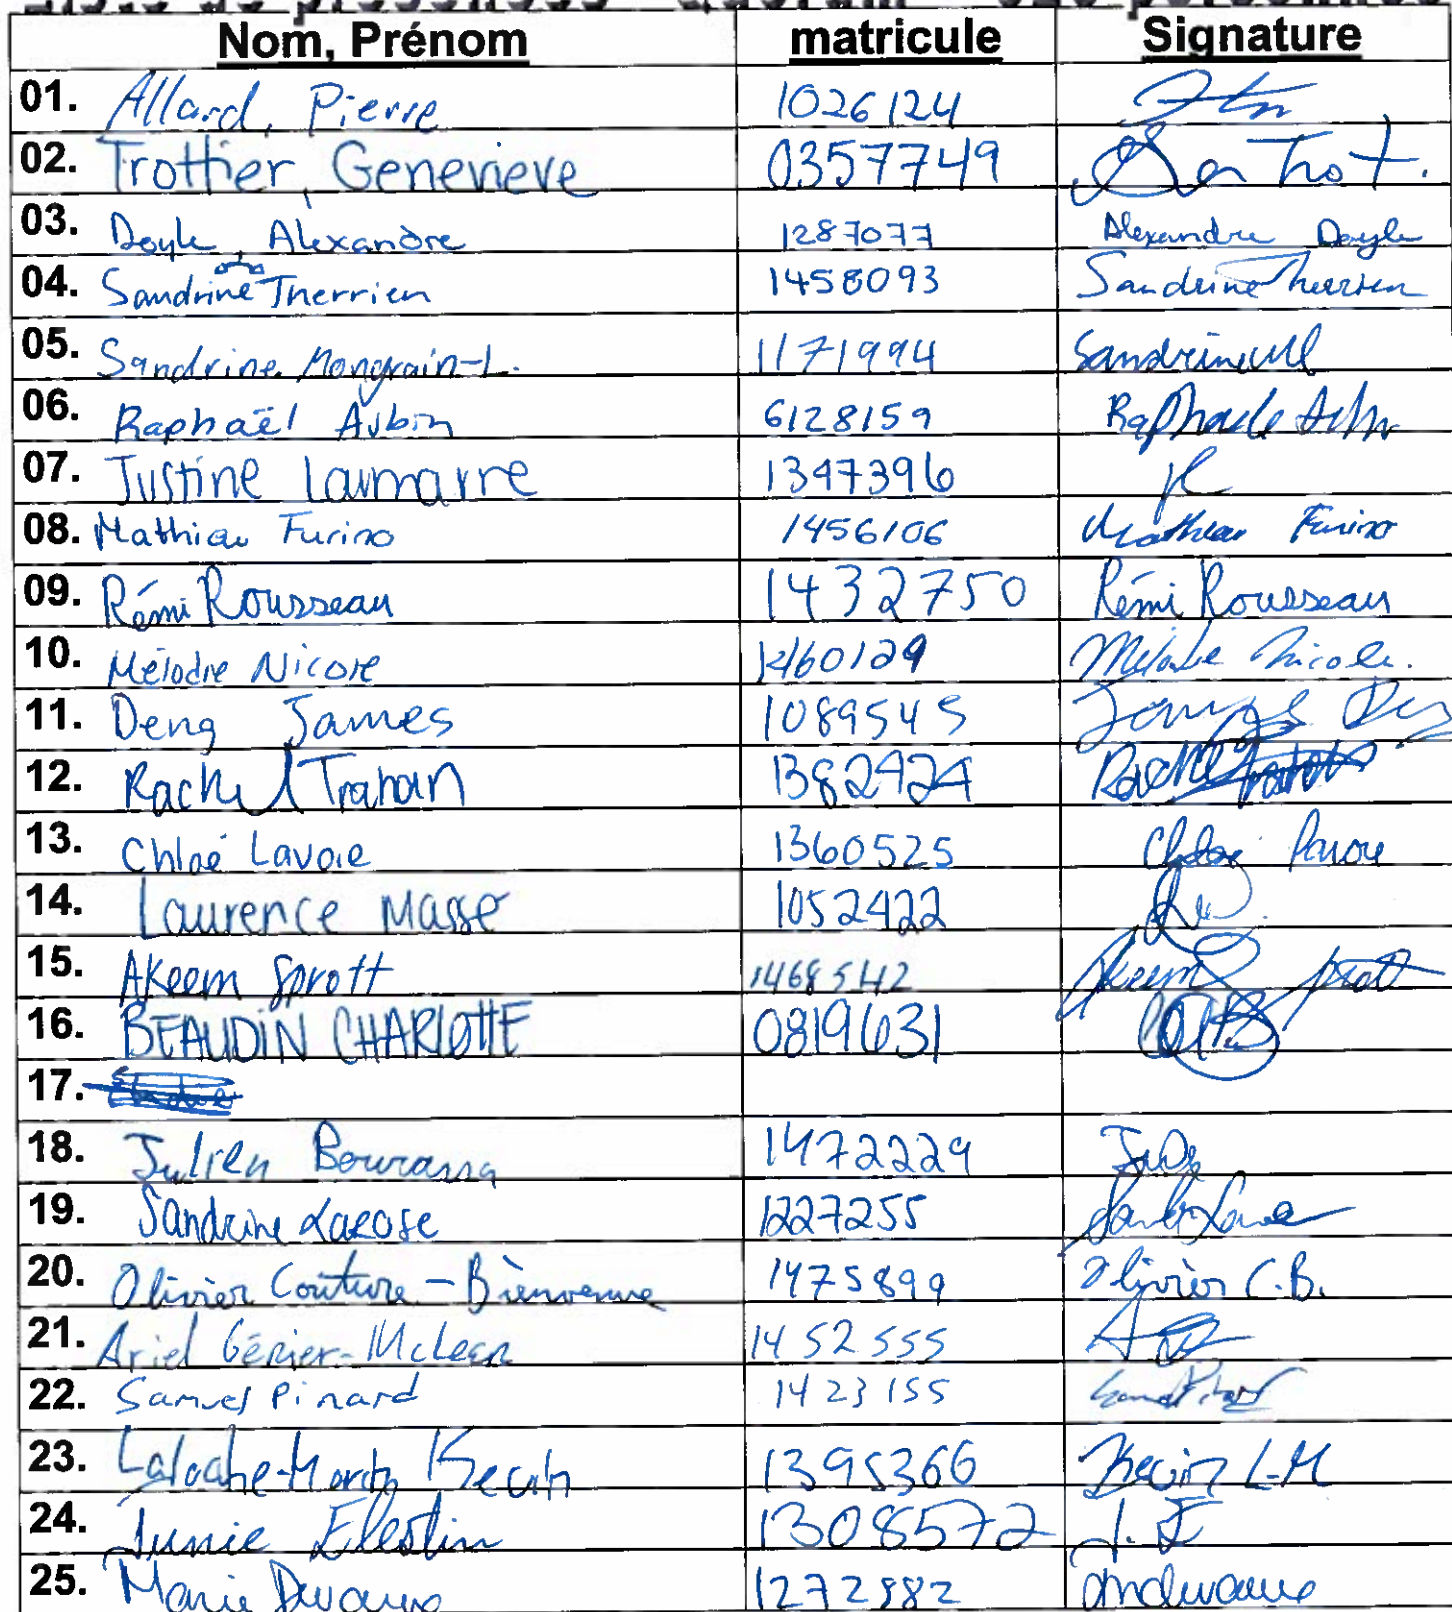 Liste de présences Quorum personnes
Nom, Prénom matricule Signature
01. Allard, Pierre 1026124
02. Trottier, Genevieve 0357749 Gen Trot.
03. Doyle, Alexandre 1287077 Alexandre Doyle
04. Sandrine Therrien 1458093 Sandrine Therrien
05. Sandrine Mongrain-L. 1171994
06. Raphaël Aubin 6128159
07. Justine Lamarre 1347396
08. Mathieu Furino 1456106 Mathieu Furino
09. Rémi Rousseau 1432750 Rémi Rousseau
10. Mélodie Nicole Mélodie Nicole.
11. Deng James 1089545 James
12. Rachel Trahan 1382924 Rachel
13. Chloé Lavoie 1360525 Chloé Lavoie
14. Laurence Masse 1052422
15. Akeem Sprott 1468542 Akeem Sprott
16. BEAUDIN CHARLOTTE 0819631
17.
18. Julien Bourassa 1472229
19. Sandrine Larose 1227255
20. Olivier Couture-Bienvenue 1475899 Olivier C.B.
21. Ariel Génier-McLean 1452555
22. Samuel Pinard 1423155
23. Kevin 1395366 Kevin L-M
24. Junie Elestin 1308572 J. E
25. Marie 1272982